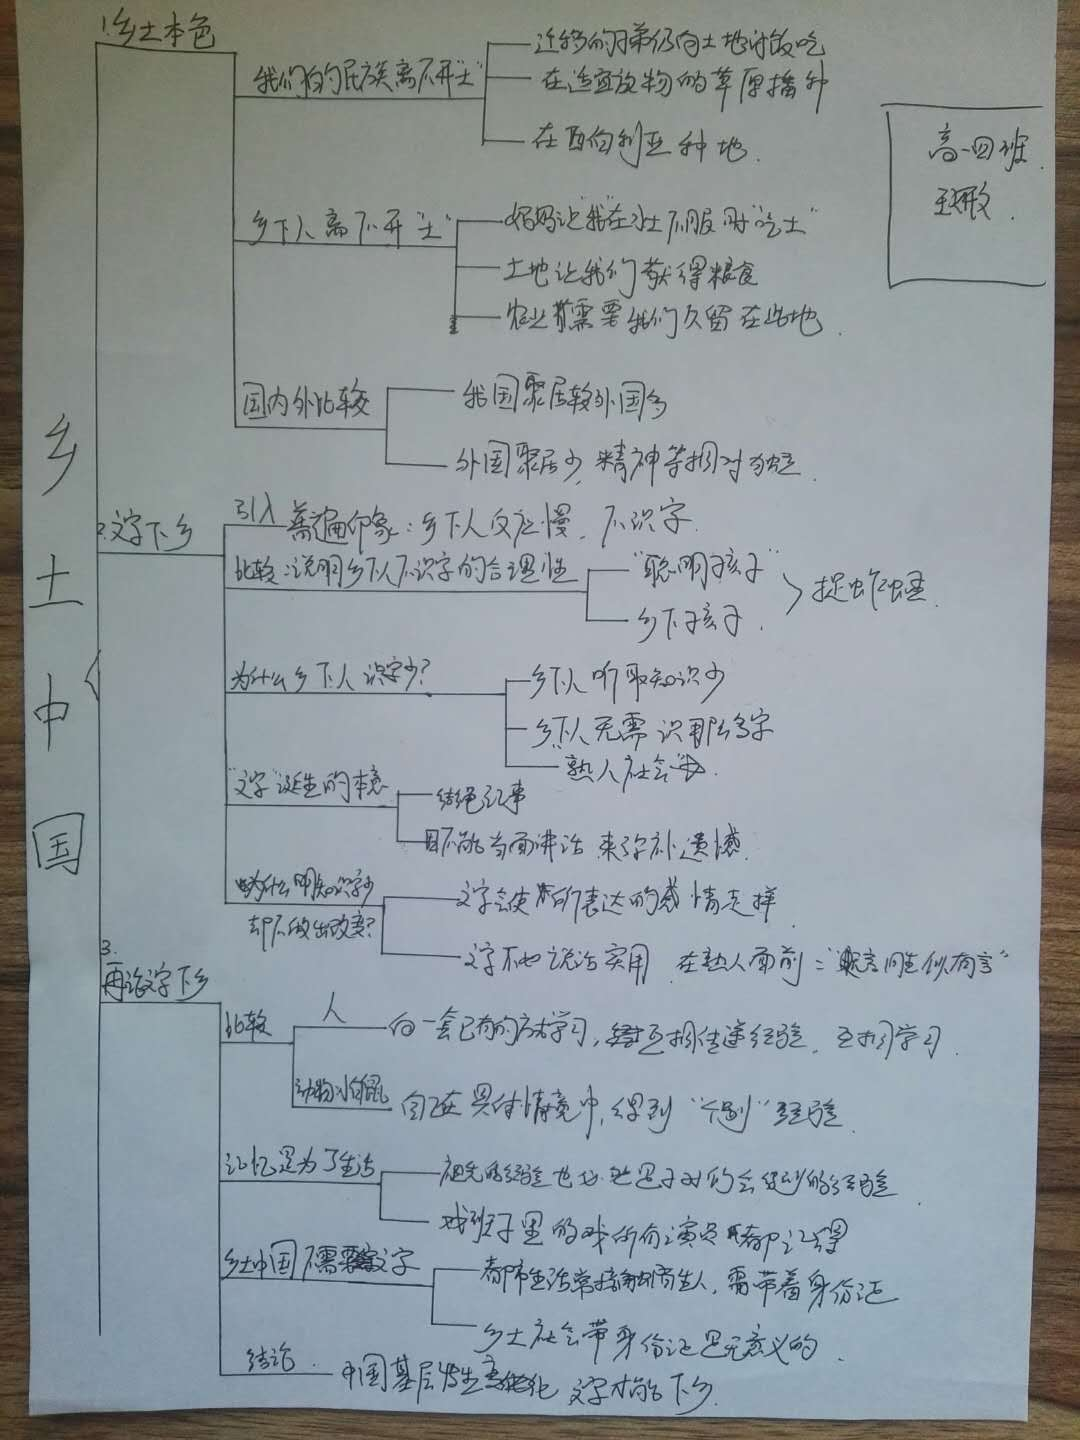 乡土中国
1.乡土本色
我们的民族离不开"土"
迁移的子弟仍向土地讨饭吃
在适宜放牧的草原播种
在西伯利亚种地.
乡下人离不开"土"
妈妈让"我"在水土不服时"吃土"
土地让我们获得粮食
农业需要我们久留在此地.
国内外比较
我国聚居较外国多
外国聚居少,精神等相对独立
高一四班.
2.文字下乡
引入 普遍印象:乡下人反应慢,不识字
比较:说明乡下人不识字的合理性
"聪明孩子"
乡下孩子.
捉蚱蜢
为什么乡下人识字少?
乡下人听取知识少
乡下人无需识那么多字
"熟人社会"
"文字"诞生的本意
结绳纪事
因不能当面讲话来弥补遗憾.
为什么明知识字少
却不做出改变?
文字会使所表达的感情走样
文字不比说话实用 在熟人面前:"眼睛 似有言"
3.
再论文字下乡
比较
人
向一套已有的方式学习,互相传递经验,互相学习.
动物
自己在具体情境中,得到"个别"经验.
记忆是为了生活
祖先的经验也必然是子孙们会得到的经验
戏班子里的戏所有演员都记得
乡土中国不需要文字
都市生活常接触陌生人,需带着身份证
乡土社会带身份证是无意义的.
结论.
中国基层发生变化 文字才能下乡.